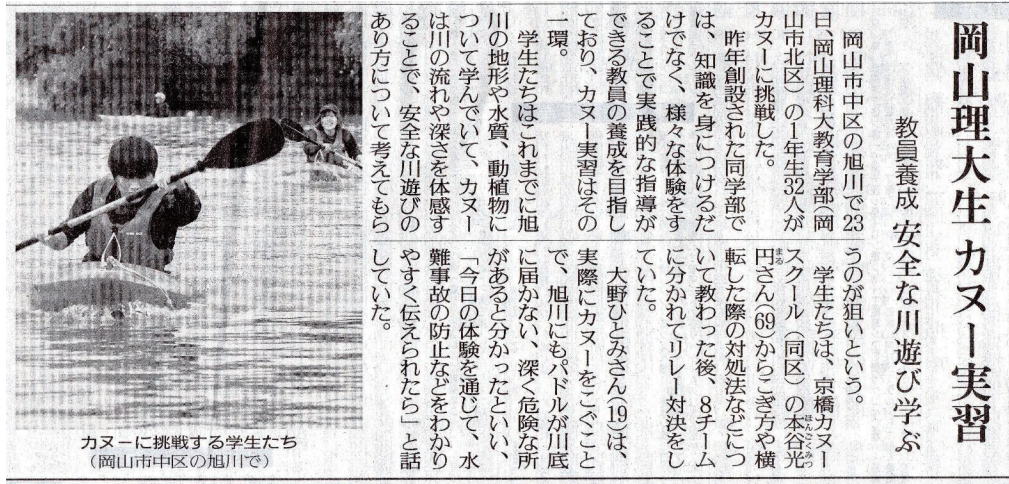 岡山理大生 カヌー実習
教員養成 安全な川遊び学ぶ
岡山市中区の旭川で23
日、岡山理科大教育学部（岡
山市北区）の1年生32人が
カヌーに挑戦した。
昨年創設された同学部で
は、知識を身につけるだ
けでなく、様々な体験をす
ることで実践的な指導が
できる教員の養成を目指し
ており、カヌー実習はその
一環。
学生たちはこれまでに旭
川の地形や水質、動植物に
ついて学んでいて、カヌー
は川の流れや深さを体感す
ることで、安全な川遊びの
あり方について考えてもら
うのが狙いという。
学生たちは、京橋カヌー
スクール（同区）の本谷光
ほんごくみつ
円さん(69)からこぎ方や横
まる
転した際の対処法などにつ
いて教わった後、8チーム
に分かれてリレー対決をし
ていた。
大野ひとみさん(19)は、
実際にカヌーをこぐこと
で、旭川にもパドルが川底
に届かない、深く危険な所
があると分かったといい、
「今日の体験を通じて、水
難事故の防止などをわかり
やすく伝えられたら」と話
していた。
カヌーに挑戦する学生たち
（岡山市中区の旭川で）